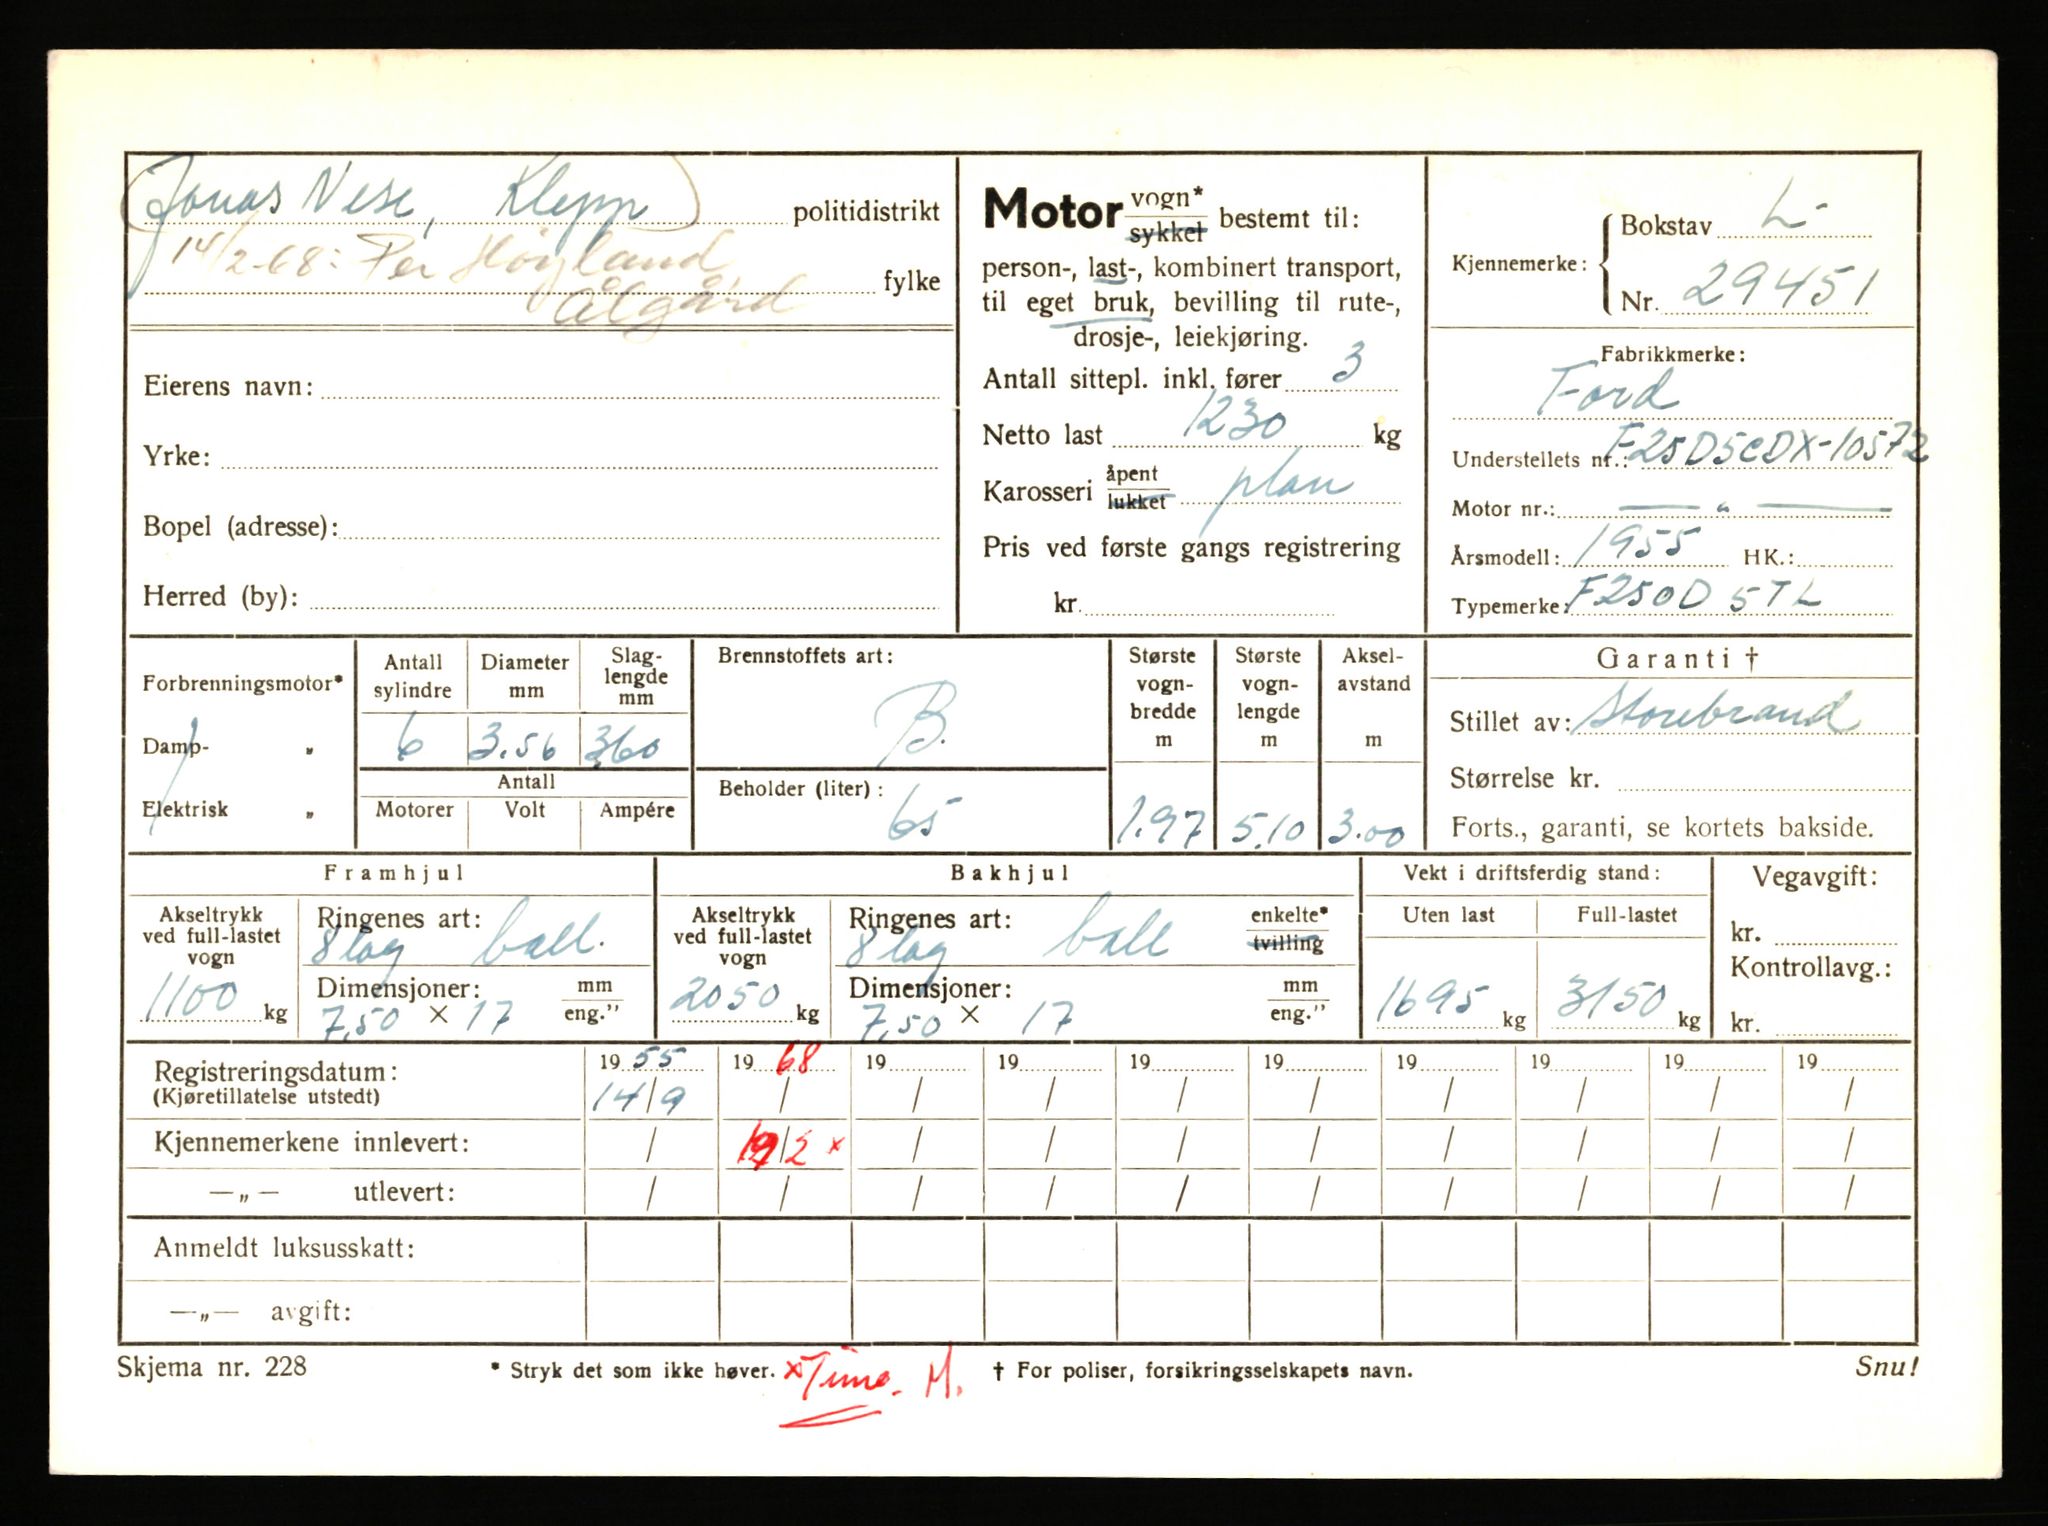 Jonas Nese, Klepp politidistrikt
14/2-68: Per Høyland, fylke
Ålgård
Eierens navn:
Yrke:
Bopel (adresse):
Herred (by):
Motor vogn* / sykkel bestemt til:
person-, last-, kombinert transport,
til eget bruk, bevilling til rute-,
drosje-, leiekjøring.
Antall sittepl. inkl. fører 3
Netto last 1230 kg
Karosseri åpent / lukket plan
Pris ved første gangs registrering
kr.
Kjennemerke: Bokstav L-
Nr. 29451
Fabrikkmerke:
Ford
Understellets nr.: F25D5CDX-10572
Motor nr.: — " —
Årsmodell: 1955 HK.:
Typemerke: F250D 5TL
Forbrenningsmotor*
Damp- „
Elektrisk „
Antall sylindre 6
Diameter mm 3.56
Slag-lengde mm 360
Antall
Motorer Volt Ampére
Brennstoffets art:
B.
Beholder (liter):
65
Største vogn-bredde m 1.97
Største vogn-lengde m 5.10
Aksel-avstand m 3.00
Garanti †
Stillet av: Storebrand
Størrelse kr.
Forts., garanti, se kortets bakside.
Framhjul
Akseltrykk ved full-lastet vogn 1100 kg
Ringenes art: 8 lag ball.
Dimensjoner: 7,50 × 17 mm / eng."
Bakhjul
Akseltrykk ved full-lastet vogn 2050 kg
Ringenes art: 8 lag ball enkelte* / tvilling
Dimensjoner: 7,50 × 17 mm / eng."
Vekt i driftsferdig stand:
Uten last Full-lastet
1695 kg 3150 kg
Vegavgift:
kr.
Kontrollavg.:
kr.
Registreringsdatum: 19 55 19 68 19 19 19 19 19 19 19 19
(Kjøretillatelse utstedt) 14/9 / / / / / / / / /
Kjennemerkene innlevert: / /2 × / / / / / / / /
—„— utlevert: / / / / / / / / / /
Anmeldt luksusskatt:
—„— avgift:
Skjema nr. 228 * Stryk det som ikke høver. × Time. M. † For poliser, forsikringsselskapets navn. Snu!